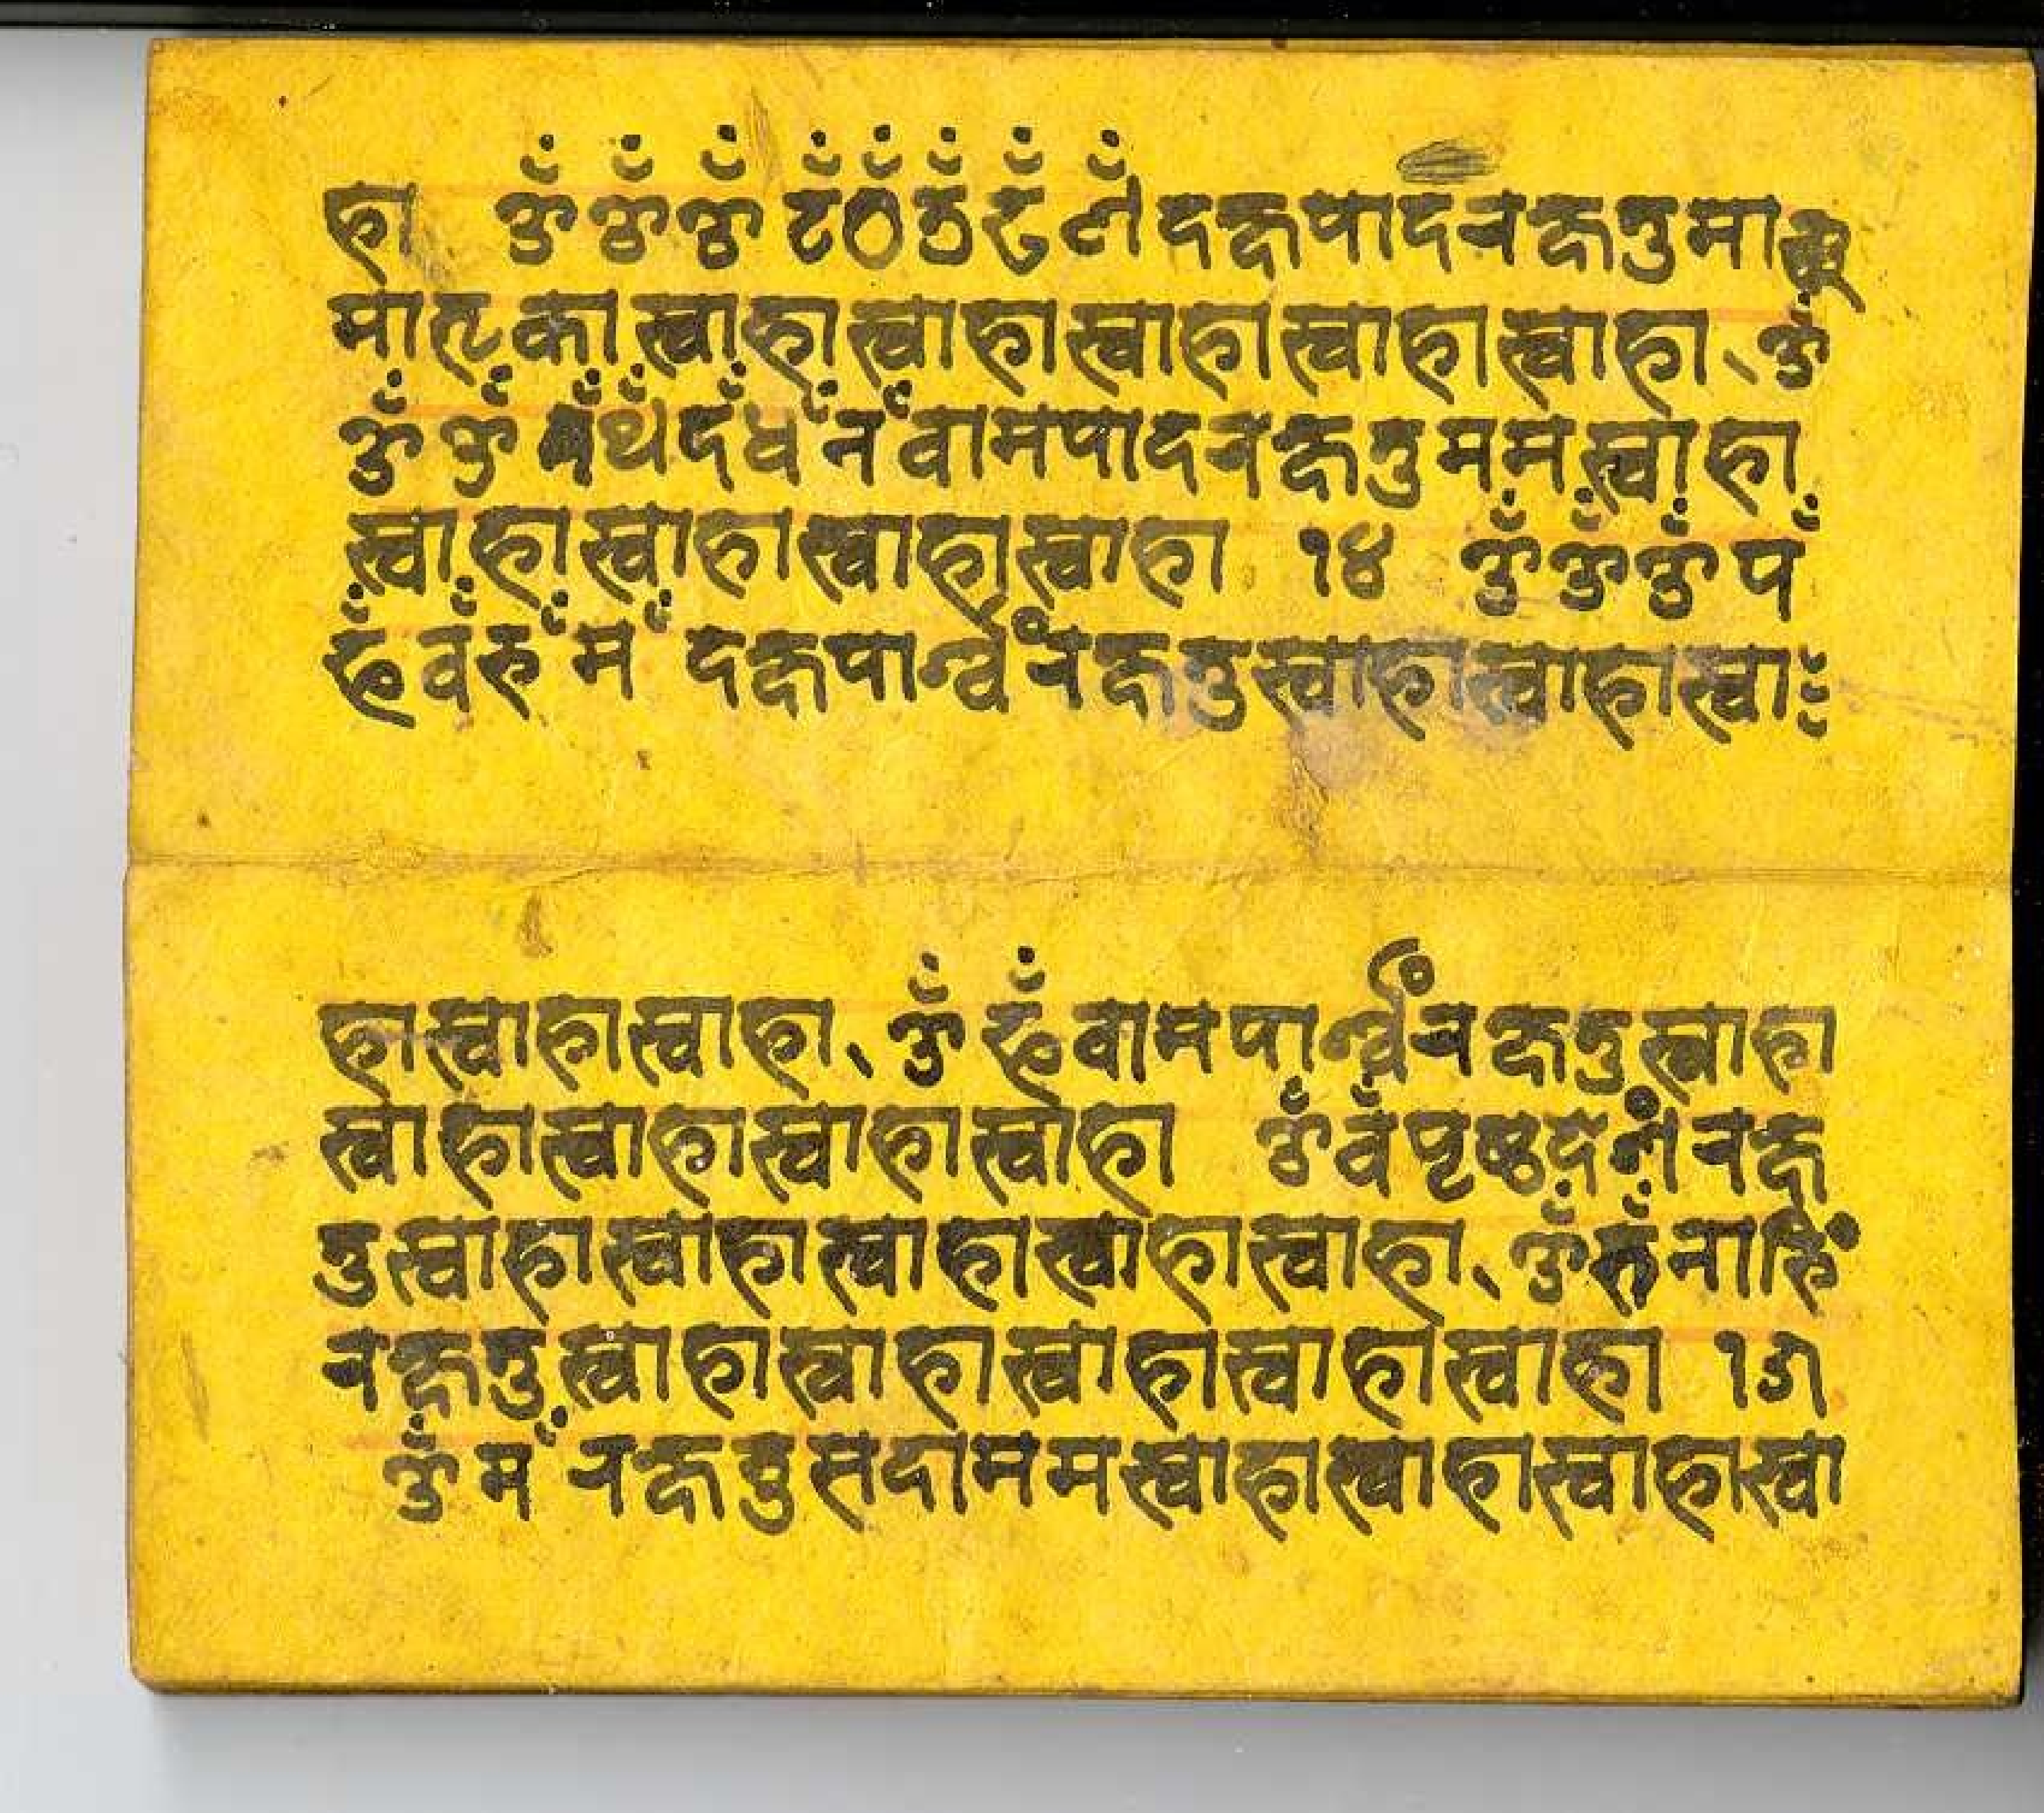 हा ॐ ॐ ॐ टँ ठँ डँ ढँ णँ दक्षपादरक्षतु मा
मातृका स्वाहा स्वाहा स्वाहा स्वाहा स्वाहा ॐ
ॐ ॐ तँ थँ दँ धँ नँ वामपादरक्षतु मम स्वाहा
स्वाहा स्वाहा स्वाहा स्वाहा १४ ॐ ॐ ॐ पँ
फँ बँ भँ मँ दक्षपार्श्वं रक्षतु स्वाहा स्वाहा स्वा
हा स्वाहा स्वाहा ॐ फँ वामपार्श्वं रक्षतु स्वाहा
स्वाहा स्वाहा स्वाहा स्वाहा ॐ बँ पृष्ठदेशं रक्ष
तु स्वाहा स्वाहा स्वाहा स्वाहा स्वाहा ॐ भँ नाभिं
रक्षतु स्वाहा स्वाहा स्वाहा स्वाहा स्वाहा
ॐ मँ रक्षतु सदा मम स्वाहा स्वाहा स्वाहा स्वा